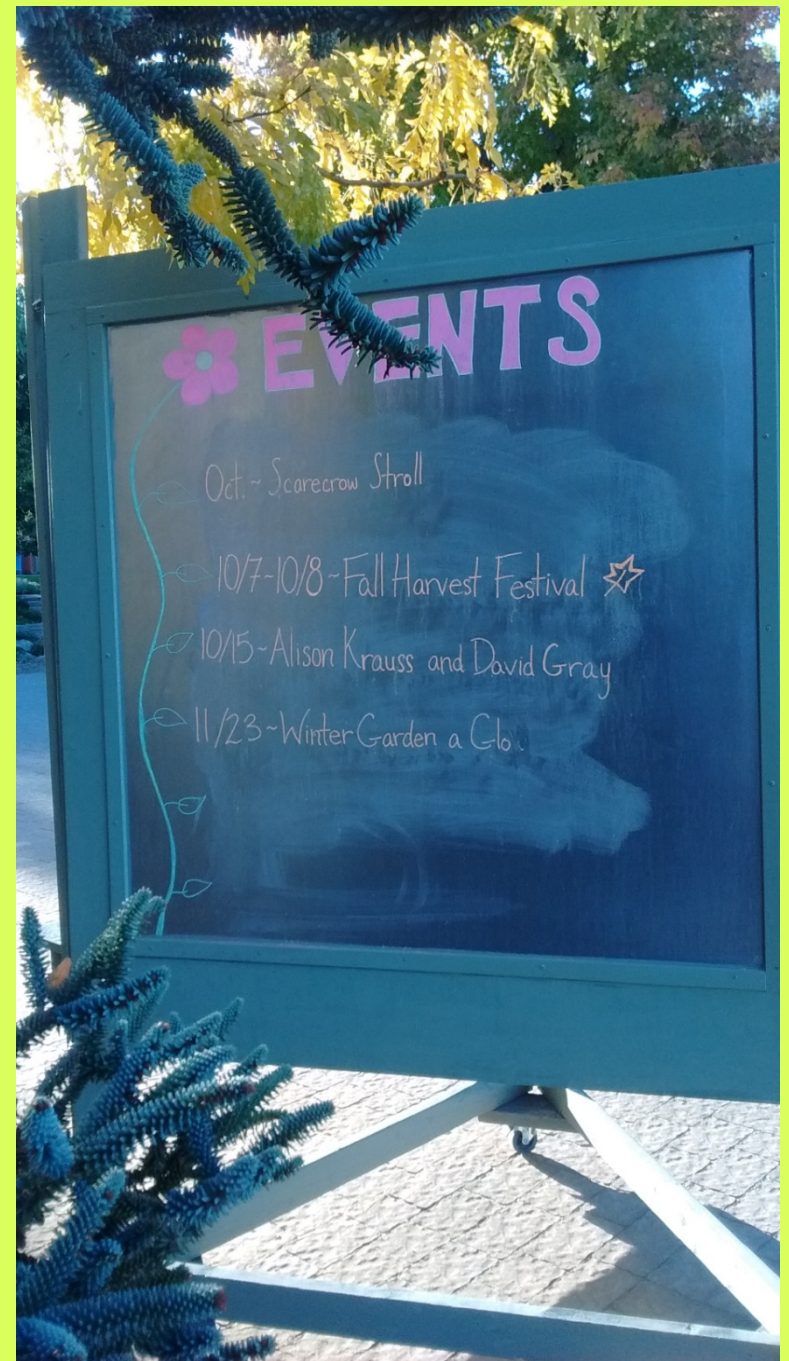 EVENTS
Oct. ~ Scarecrow Stroll
10/7-10/8 ~ Fall Harvest Festival
10/15 ~ Alison Krauss and David Gray
11/23 ~ Winter Garden a Glo